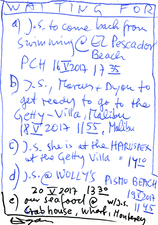 WAITING FOR
a) J.S. to come back from
Swimming @ El Pescador
Beach
PCH 16 V 2017 17 35
b) J.S., Marcus, Dyon to
get ready to go to the
Getty-Villa, Malibu
18 V 2017 11 55, Malibu
c) J.S. she is at the
at the Getty Villa = 14
d) J.S. @ WOLLY'S PISMO BEACH
19 V 2017
11 45
20 V 2017 13 30
e) our seafood w/ J.S. @
Crab house, Wharf, Monterey